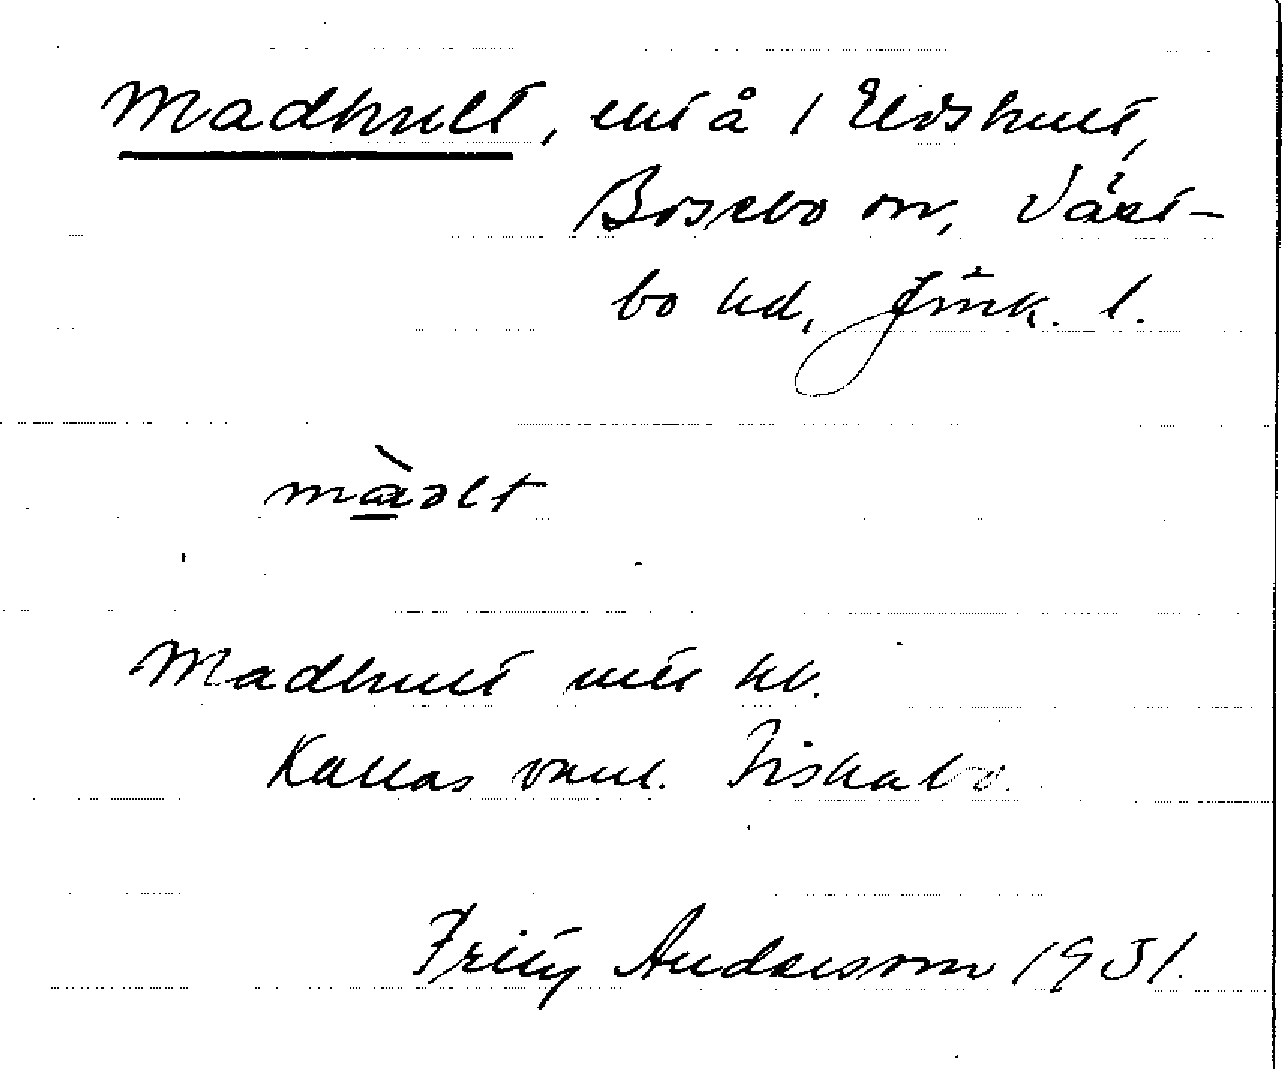 Madhult, ent å / Eldshult,
Bosebo sn, Väst-
bo hd, Jönk. l.
màdlt
Madhult
Kallas vanl. Fiskabo.
Fritz Andersson 1931.